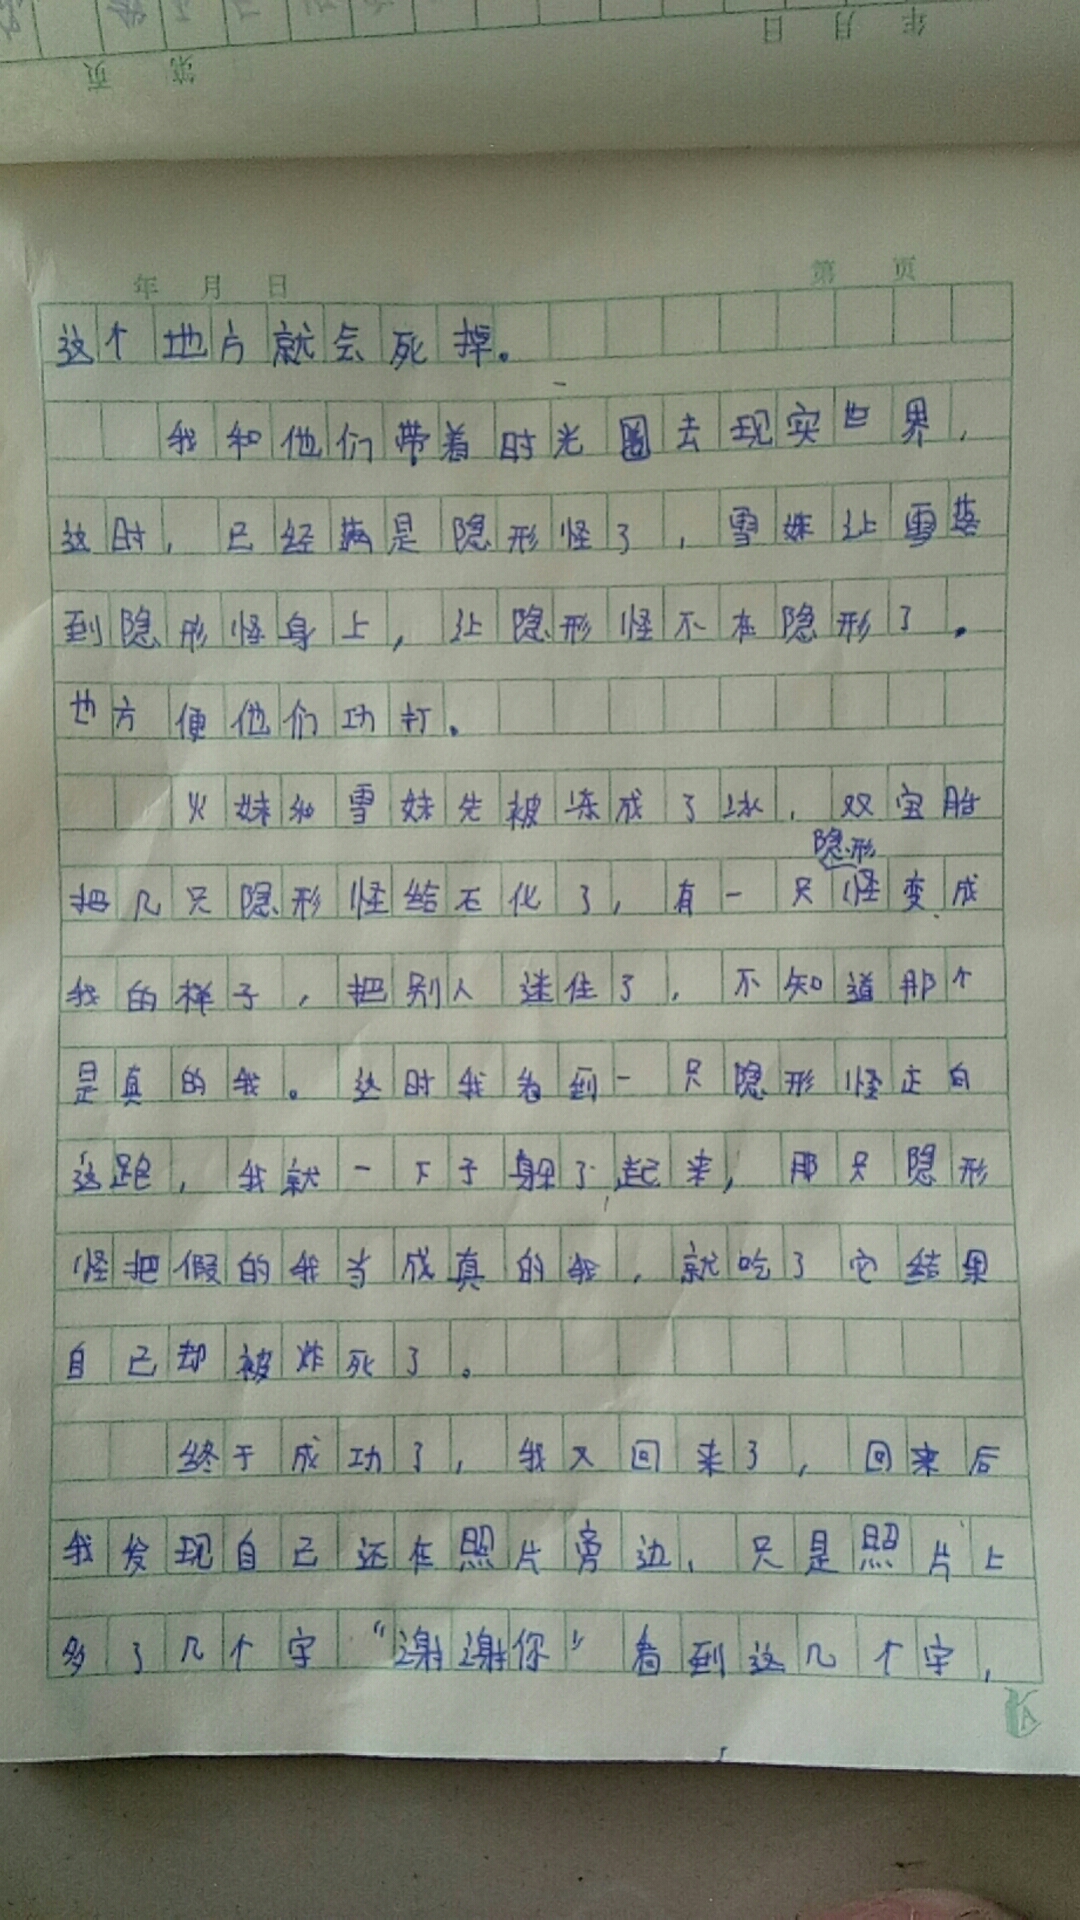 页 第 日 月 年
年 月 日 第 页
这个地方就会死掉。
我和他们带着时光圈去现实世界，
这时，已经满是隐形怪了，雪妹让雪落
到隐形怪身上，让隐形怪不在隐形了。
也方便他们功打。
火妹和雪妹先被冻成了冰，双宝胎
隐形
把几只隐形怪给石化了，有一只怪变成
我的样子，把别人迷住了，不知道那个
是真的我。这时我看到一只隐形怪正向
这跑，我就一下子躲了起来，那只隐形
怪把假的我当成真的我，就吃了它结果
自己却被炸死了。
终于成功了，我又回来了，回来后
我发现自己还在照片旁边，只是照片上
多了几个字“谢谢你”看到这几个字，